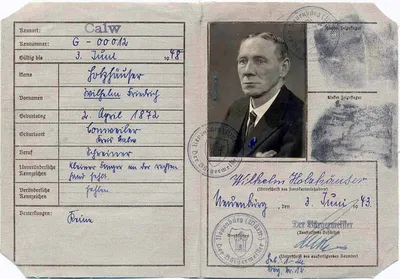 Kennort: Calw
Kennummer: G - 00012
Gültig bis 3. Juni 1948
Name Holzhäuser
Vornamen Wilhelm Friedrich
Geburtstag 2. April 1872
Geburtsort Conweiler
Kreis Calw
Beruf Schreiner
Unveränderliche Kennzeichen Kleiner Finger an der rechten
Hand fehlt.
Veränderliche Kennzeichen fehlen
Bemerkungen: Keine
Rechter Zeigefinger
Linker Zeigefinger
Wilhelm Holzhäuser
(Unterschrift des Kennkarteninhabers)
Neuenbürg, den 3. Juni 1943
Der Bürgermeister
(Unterschrift des ausfertigenden Beamten)